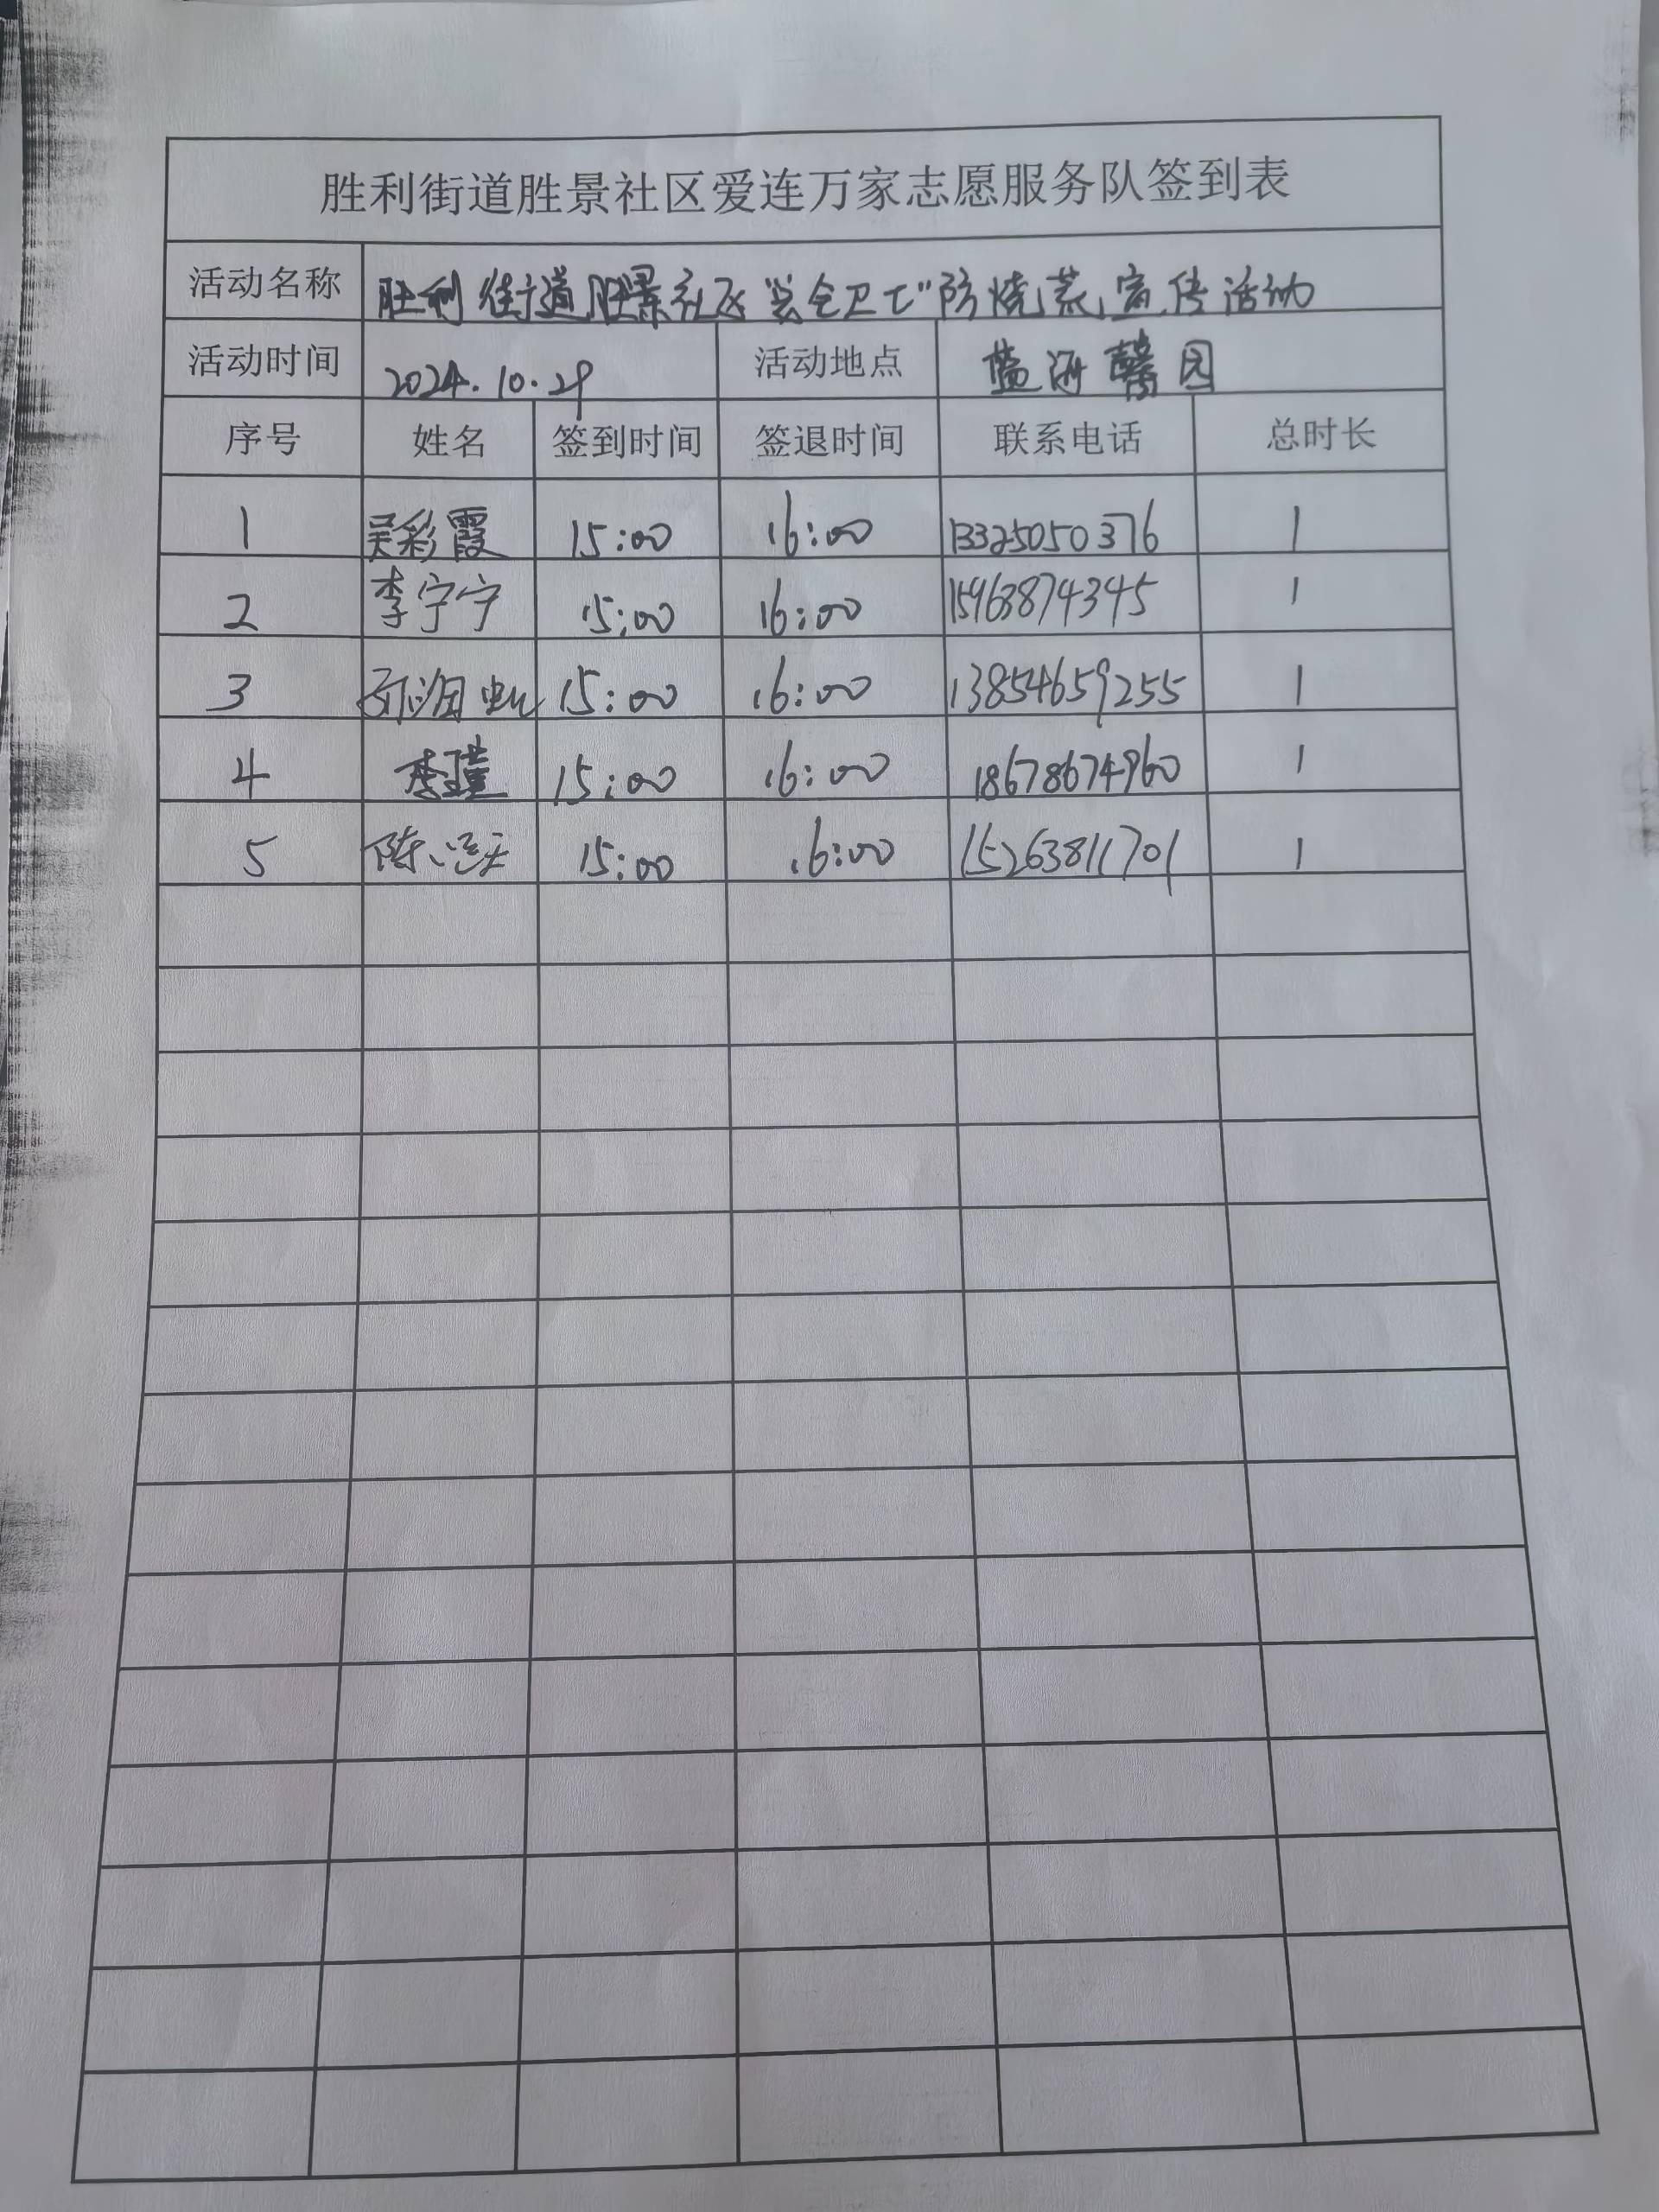 胜利街道胜景社区爱连万家志愿服务队签到表
活动名称 胜利街道胜景社区"安全卫士"防烧荒宣传活动
活动时间 2024.10.29 活动地点 蓝海馨园
序号 姓名 签到时间 签退时间 联系电话 总时长
1 吴彩霞 15:00 16:00 13325050376 1
2 李宁宁 15:00 16:00 15963874345 1
3 15:00 16:00 13854659255 1
4 李瑾 15:00 16:00 18678674960 1
5 陈 15:00 16:00 15263811701 1